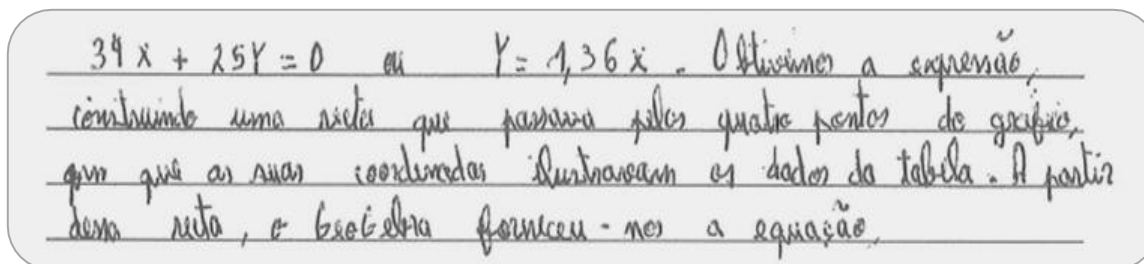 34x + 25Y = 0 ou Y = 1,36x. Obtivemos a expressão,
construindo uma reta que passava pelos quatro pontos do gráfico,
em que as suas coordenadas ilustravam os dados da tabela. A partir
dessa reta, o GeoGebra forneceu-nos a equação,